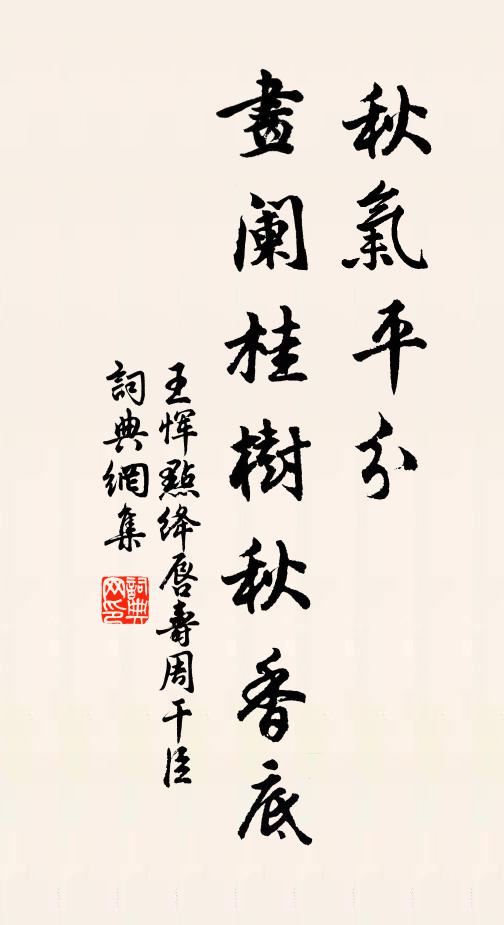 秋氣平分
畫闌桂樹秋香底
王惲點絳唇壽周干臣
詞典網集
詞典網印